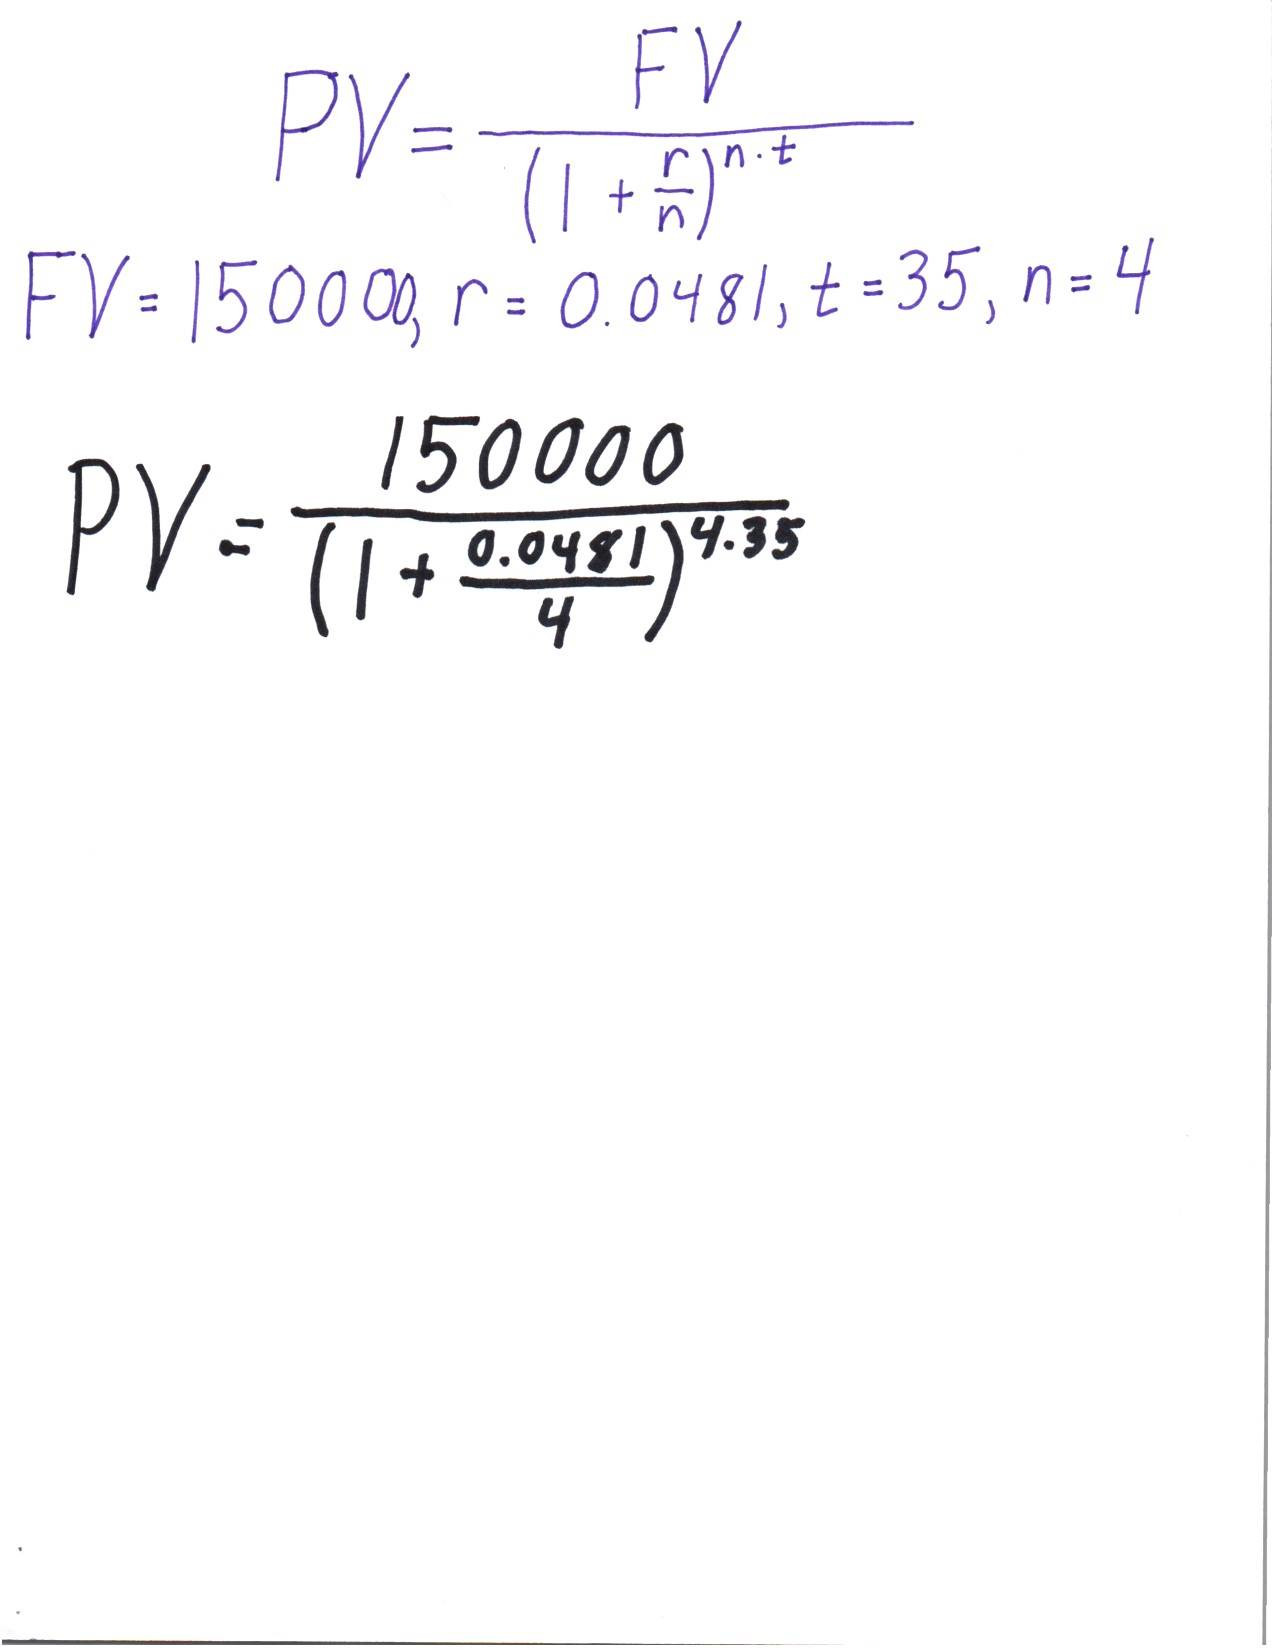 PV = FV / (1 + r/n)^n·t
FV = 150000, r = 0.0481, t = 35, n = 4
PV = 150000 / (1 + 0.0481/4)^4·35